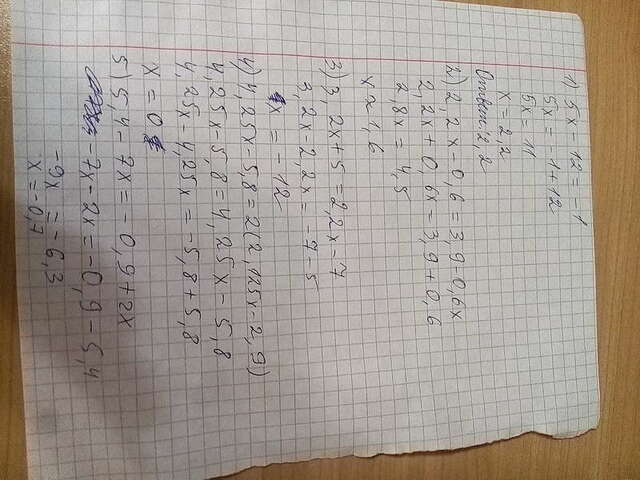 1) 5x - 12 = -1
5x = -1 + 12
5x = 11
x = 2,2
Ответ: 2,2
2) 2,2x - 0,6 = 3,9 - 0,6x
2,2x + 0,6x = 3,9 + 0,6
2,8x = 4,5
x ≈ 1,6
3) 3,2x + 5 = 2,2x - 7
3,2x - 2,2x = -7 - 5
x = -12
4) 4,25x - 5,8 = 2(2,125x - 2,9)
4,25x - 5,8 = 4,25x - 5,8
4,25x - 4,25x = -5,8 + 5,8
x = 0
5) 5,4 - 7x = -0,9 + 2x
-7x - 2x = -0,9 - 5,4
-9x = -6,3
x = -0,7